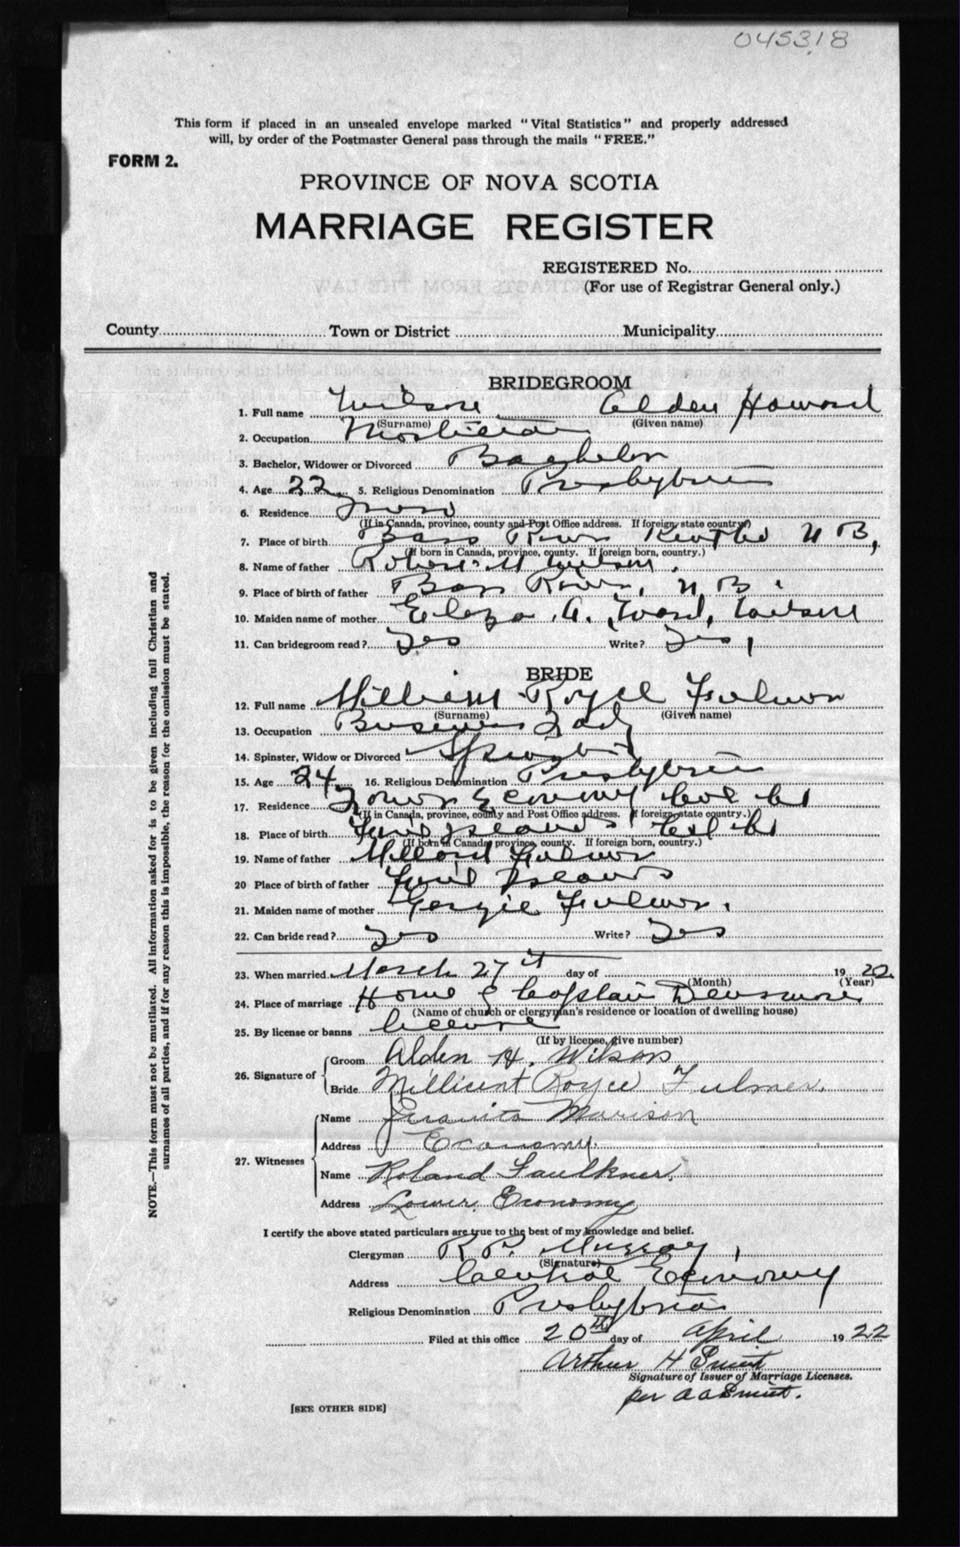 045318
This form if placed in an unsealed envelope marked "Vital Statistics" and properly addressed
will, by order of the Postmaster General pass through the mails "FREE."
FORM 2.
PROVINCE OF NOVA SCOTIA
MARRIAGE REGISTER
REGISTERED No.
(For use of Registrar General only.)
County Town or District Municipality
BRIDEGROOM
1. Full name Wilson Alden Howard
(Surname) (Given name)
2. Occupation
3. Bachelor, Widower or Divorced Bachelor
4. Age 22 5. Religious Denomination Presbyterian
6. Residence Truro
(If in Canada, province, county and Post Office address. If foreign, state country)
7. Place of birth Bass River N B,
(If born in Canada, province, county. If foreign born, country.)
8. Name of father Robert M Wilson.
9. Place of birth of father Bass River, N B.
10. Maiden name of mother Eliza A. Ward, Wilson
11. Can bridegroom read? Yes Write? Yes,
BRIDE
12. Full name Royce Fulmer
(Surname) (Given name)
13. Occupation Business Lady
14. Spinster, Widow or Divorced Spinster
15. Age 24 16. Religious Denomination Presbyterian
17. Residence Lower Economy Col
(If in Canada, province, county and Post Office address. If foreign, state country.)
18. Place of birth Five Islands Col
(If born in Canada, province, county. If foreign born, country.)
19. Name of father Millard Fulmer
20 Place of birth of father Five Islands
21. Maiden name of mother Georgie Fulmer.
22. Can bride read? Yes Write? Yes
23. When married March 27th day of 19 22
(Month) (Year)
24. Place of marriage Home of Captain Densmore
(Name of church or clergyman's residence or location of dwelling house)
25. By license or banns license
(If by license, give number)
26. Signature of
Groom Alden H. Wilson
Bride Millicent Royce Fulmer.
27. Witnesses
Name Juanita Marison
Address Economy
Name Roland Faulkner.
Address Lower Economy
I certify the above stated particulars are true to the best of my knowledge and belief.
Clergyman R P. Murray,
(Signature)
Address Central Economy
Religious Denomination Presbyterian
Filed at this office 20th day of April 19 22
Arthur H Smith
Signature of Issuer of Marriage Licenses.
per A A Smith.
[SEE OTHER SIDE]
NOTE.—This form must not be mutilated. All information asked for is to be given including full Christian and
surnames of all parties, and if for any reason this is impossible, the reason for the omission must be stated.